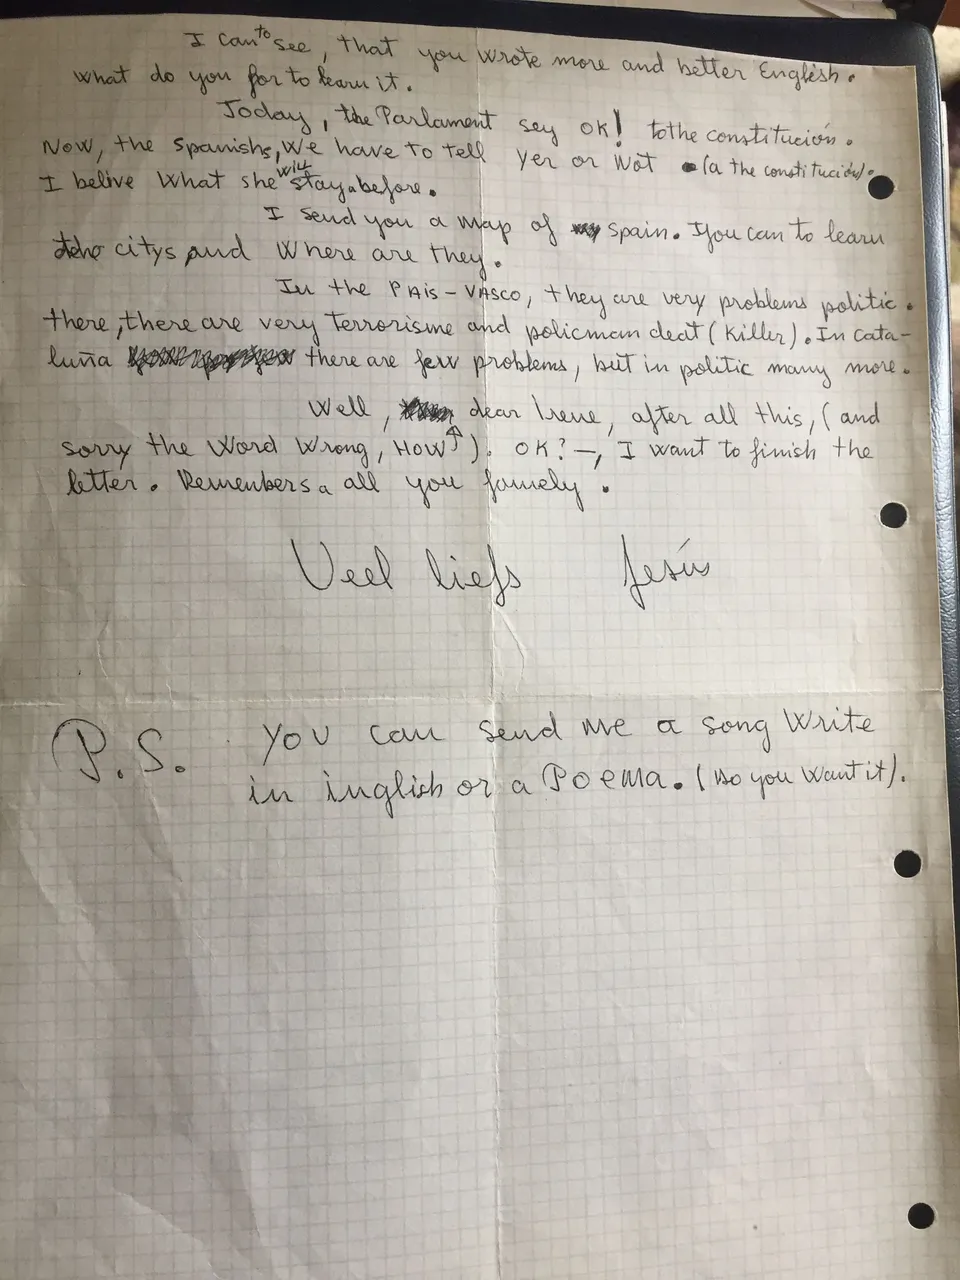 I can to see, that you wrote more and better English.
What do you for to learn it.
Today, the Parlament sey OK! to the constitución.
Now, the spanishs, we have to tell yer or Not (a the constitución).
I belive what she will stay a before.
I send you a map of my spain. If you can to learn
the citys and where are they.
In the PAis-VAsco, they are very problems politic.
there, there are very Terrorisme and policman deat (killer). In cata-
luña there are few problems, but in politic many more.
Well, dear Irene, after all this, (and
sorry the Word Wrong, HOW). OK? –, I want to finish the
letter. Remenbers a all you famely.
Veel liefs Jesús
P.S. YOU can send me a song write
in inglish or a Poema. (Do you want it).